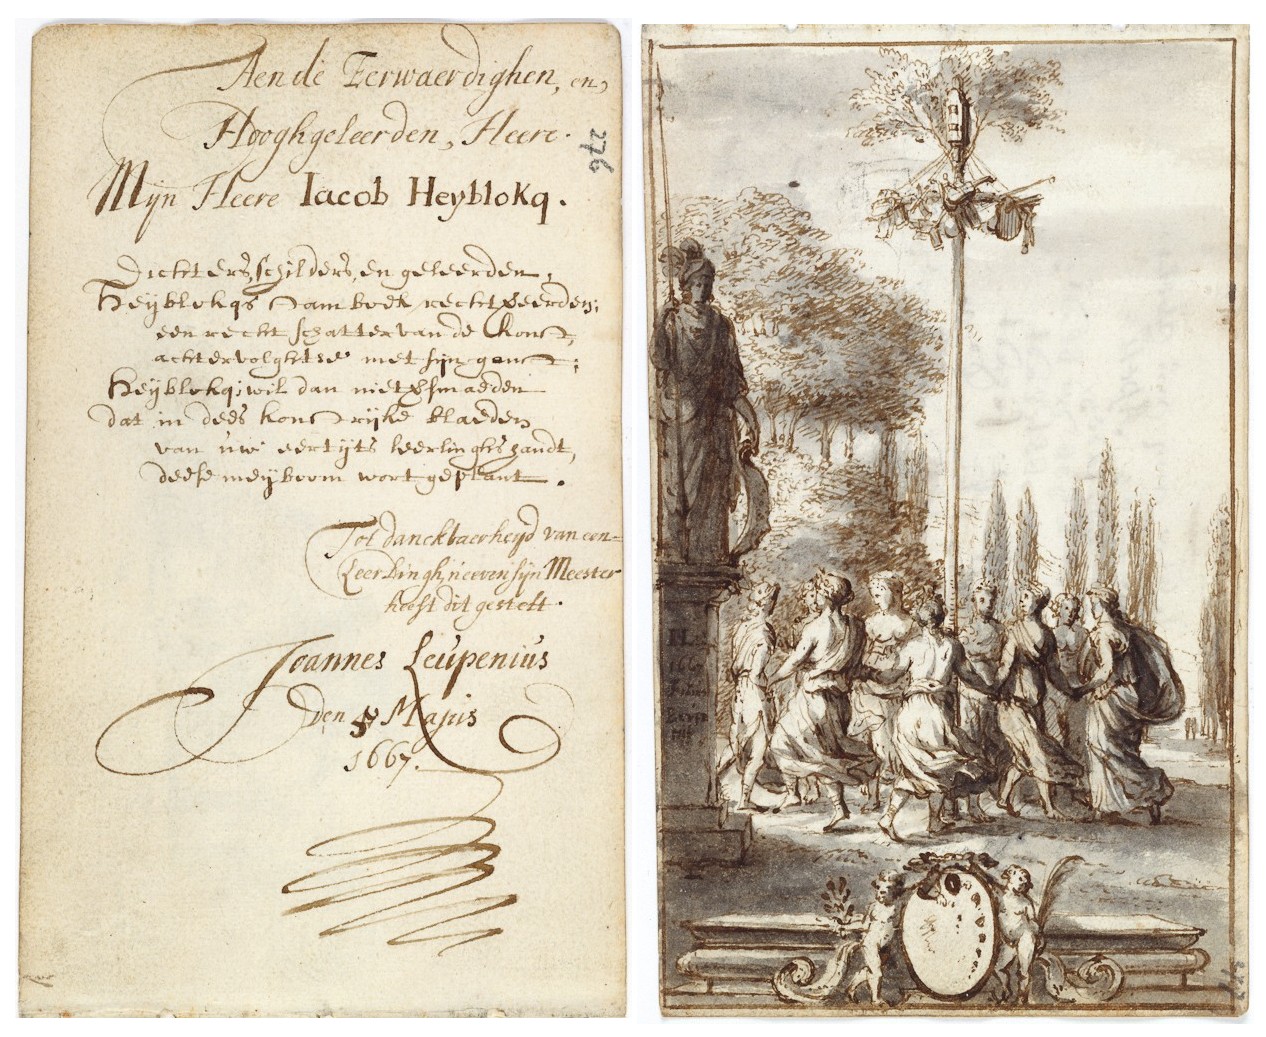 Aen de Eerwaerdighen, en,
Hooghgeleerden, Heere.
Mijn Heere Iacob Heyblokq.
276
Dichters, schilders, en geleerden,
Heyblokqs stamboek recht
een recht schatter van de konst,
achtervolght se met sijn gonst;
Heyblokq; wil dan niet
dat in dees konstrijke blaeden
van uw eertijts leerlinghs handt,
deese meyboom wort geplant.
Tot danckbaerheyd van een
Leerlingh, neeven sijn Meester
heeft dit gestelt.
Joannes Leupenius
den Majus
1667.
IL
1667
275